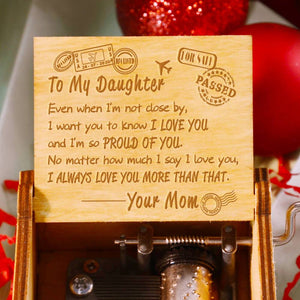 FOR SALE
PASSED
To My Daughter
Even when I'm not close by,
I want you to know I LOVE YOU
and I'm so PROUD OF YOU.
No matter how much I say I love you,
I ALWAYS LOVE YOU MORE THAN THAT.
Your Mom